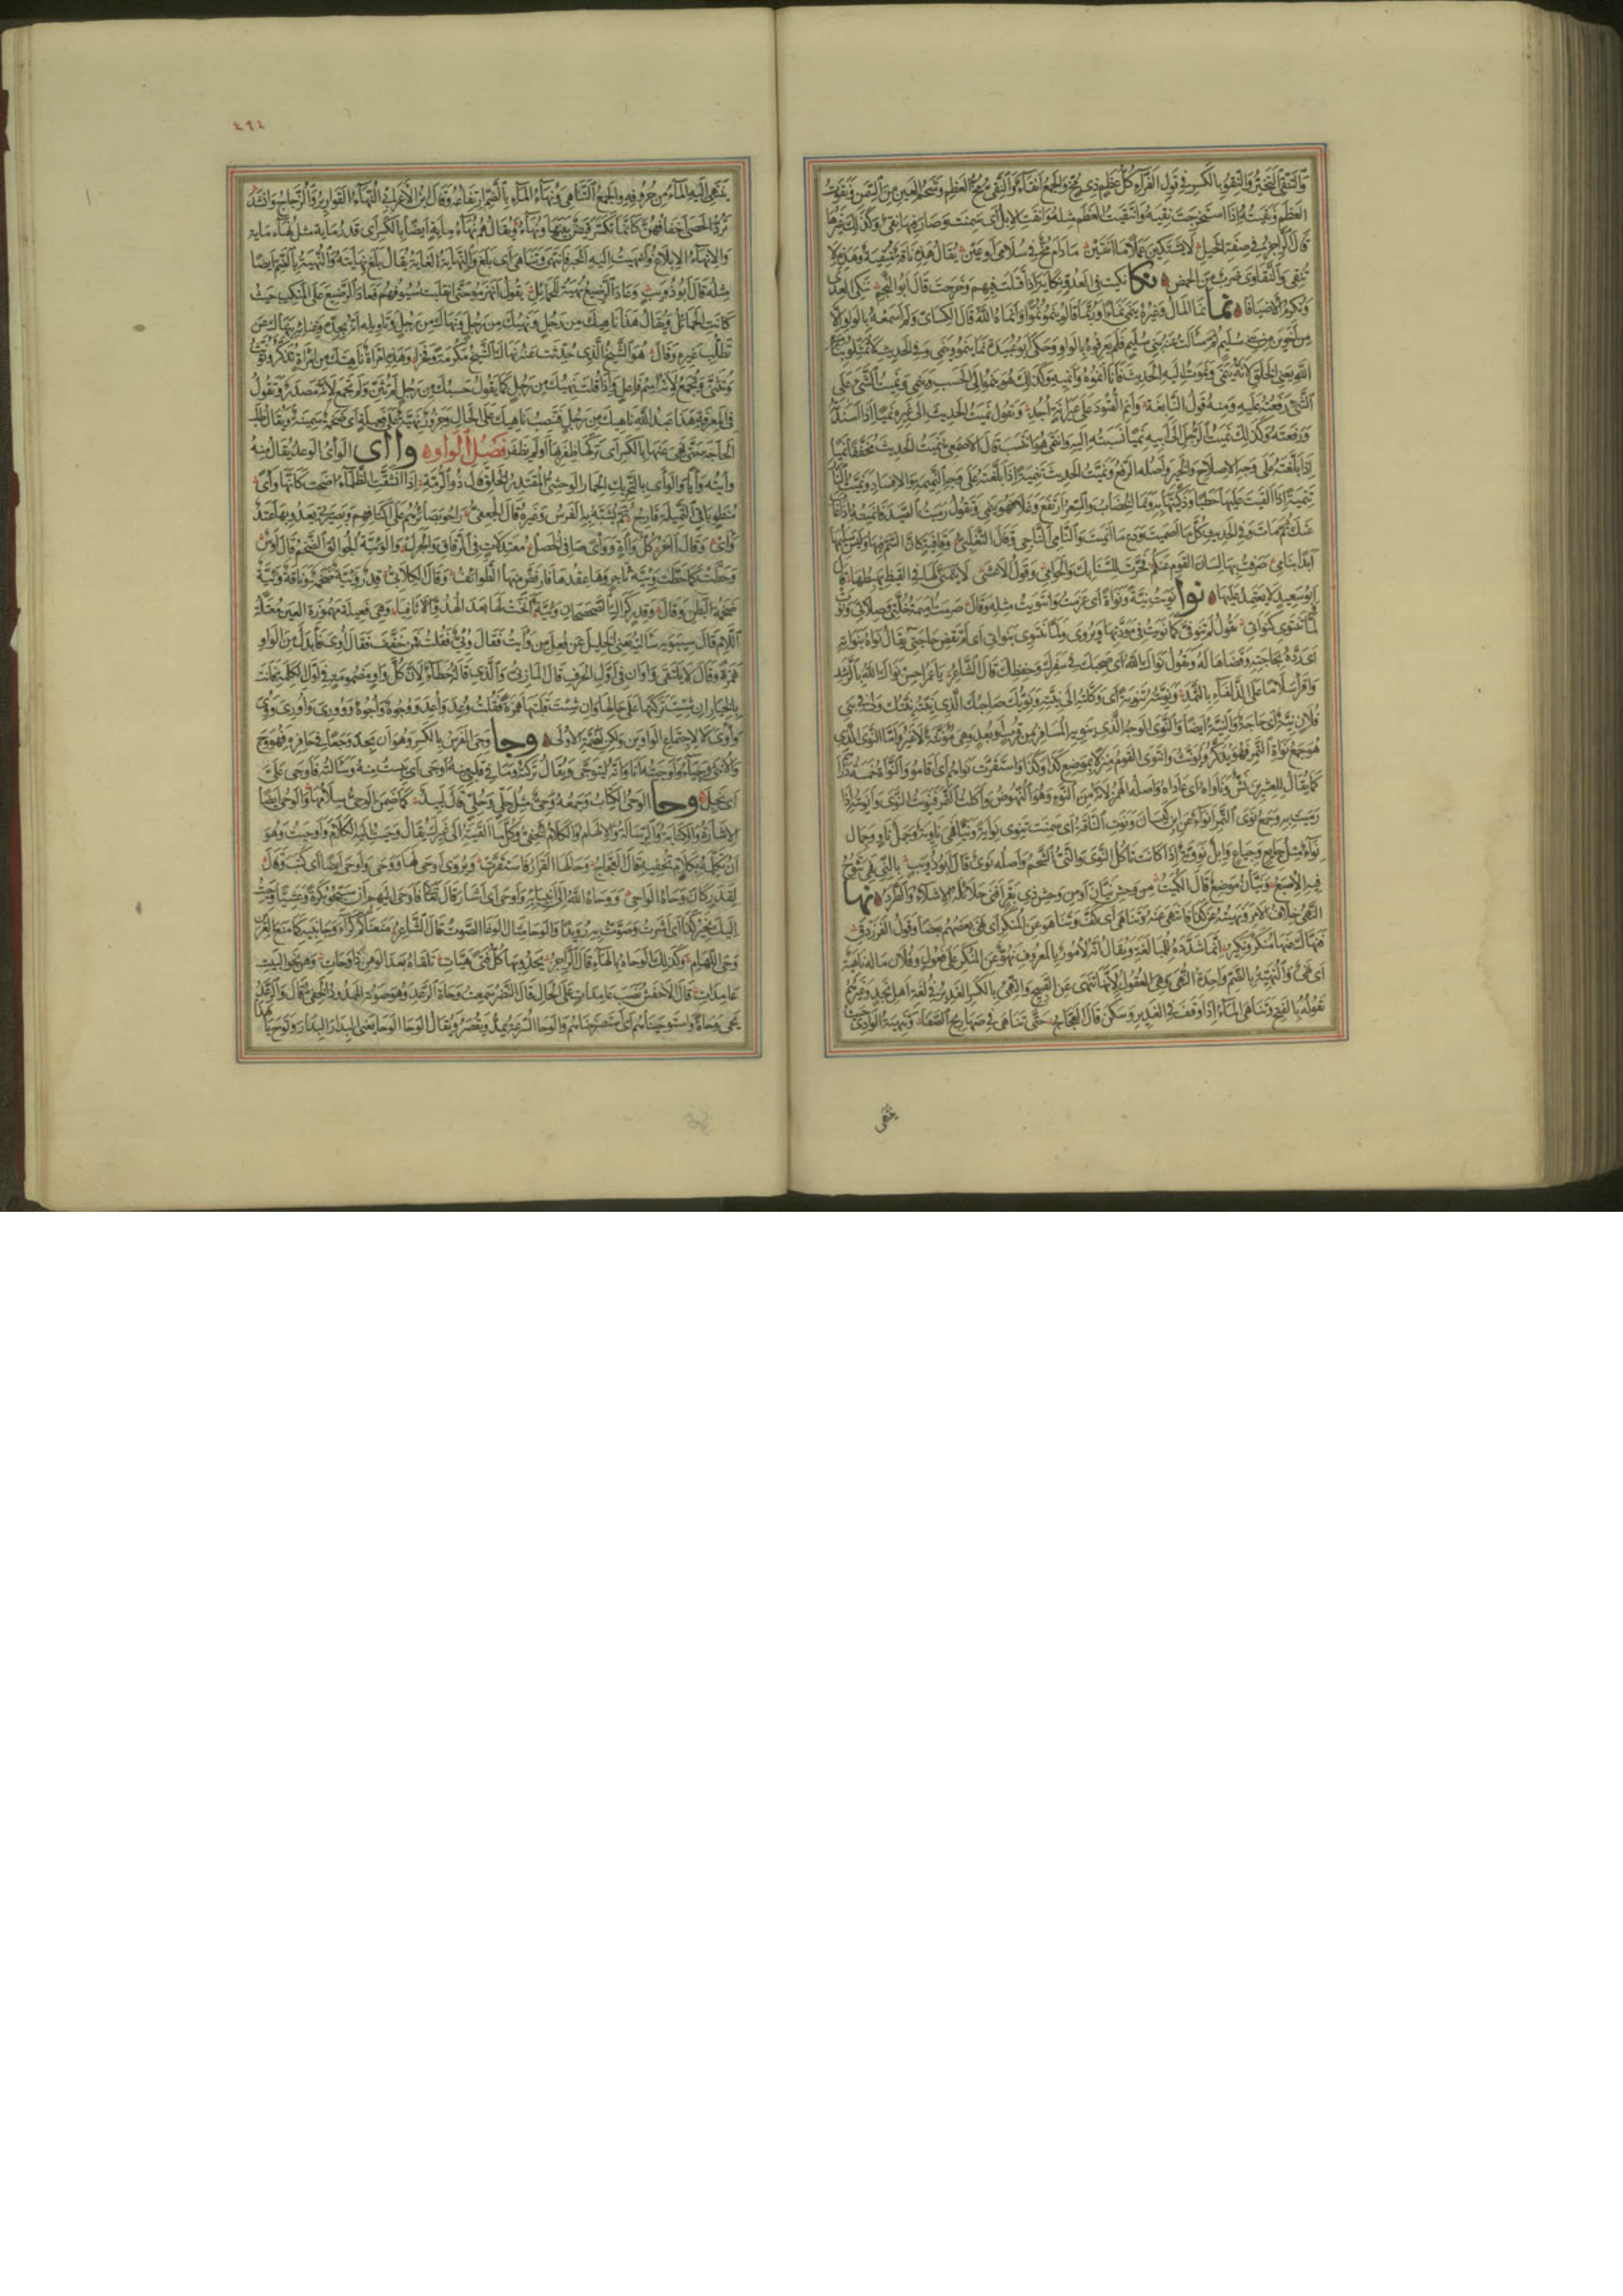 والتنقي التخير والنقو بالكسر في قول الفراء كل عظم ذي مخ والجمع انقاء والنقي مخ العظم وشحم العين من السمن ونقوت
العظم ونقيته اذا استخرجت نقيه وانتقيت العظم مثله وانقت الابل اى سمنت وصار فيها نقي وكذلك غيرها
قال الراجز في صفة الخيل لا يشتكين عملا ما انقين ما دام مخ في سلامى او عين يقال هذه ناقة منقية وهذه لا
تنقي والنقاوى ضرب من الحمض نكا نكيت في العدو نكاية اذا قتلت فيهم وجرحت قال ابو النجم ننكي العدى
ونكرم الاضيافا نما نما المال وغيره ينمي نماء وربما قالوا ينمو نموا وانماه الله قال الكسائي ولم اسمعه بالواو الا
من اخوين من بني سليم ثم سالت عنه بني سليم فلم يعرفوه بالواو وحكى ابو عبيدة نما ينمو وينمي وفي الحديث لا تمثلوا
الله يعني الخلق لانه ينمي ونموت اليه الحديث فانا انموه وانميه وكذلك هو ينمو الى الحسب وينمي ونميت الشئ على
الشئ رفعته عليه ومنه قول النابغة وانم القتود على عيرانة اجد وتقول نميت الحديث الى غيري نميا اذا اسندته
ورفعته وكذلك نميت الرجل الى ابيه نميا نسبته اليه وانتمى هو انتسب قال الاصمعي نميت الحديث مخففا نميا
اذا بلغته على وجه الاصلاح والخير واصله الرفع ونميت الحديث تنمية اذا بلغته على وجه النميمة والافساد ونميت النار
تنمية اذا القيت عليها حطبا وذكيتها به ونما الخضاب والسعر ارتفع وغلا فهو ينمي وتقول رميت الصيد فانميته اذا غاب
عنك ثم مات وفي الحديث كل ما اصميت ودع ما انميت والنامي الناجي وقال التغلبي وقافية كان السم فيها وليس سليمها
ابدا بنامي صرفت بها لسان القوم عنكم فخرت للسنابك والحوامي وقول الاعشى لا يتنمى لها في القيظ يهبطها قال
ابو سعيد لا يعتمد عليها نوا نويت نية ونواة اى عزمت وانتويت مثله وقال صرمت اميمة خلتي وصلاتي ونوت
لما تنتوي كنواتي تقول لم تنو في كما نويت في مودتها ويروى ولما تنتوي بنواتي اى لم تقض حاجتي يقال نواه بنواته
اى رده بحاجته وقضاها له وتقول نواك الله اى صحبك في سفرك وحفظك قال الشاعر يا عمرو احسن نواك الله بالرشد
واقرا سلاما على الذلفاء بالثمد ونويته تنوية اى وكلته الى نيته ونويك صاحبك الذي نيته نيتك ولي في بني
فلان نية اى حاجة والنية ايضا والنوى الوجه الذي ينويه المسافر من قرب او بعد وهي مؤنثة لا غير واما النوى الذي
هو جمع نواة التمر فهو يذكر ويؤنث وانتوى القوم منزلا بموضع كذا وكذا واستقرت نواهم اى اقاموا والنواة خمسة دراهم
كما يقال للعشرين نش وناواه اى عاداه واصله الهمز لانه من النوء وهو النهوض واكلت التمر فنويت النوى وانويته اذا
رميت به وجمع نوى التمر انواء عن ابن كيسان ونوت الناقة اى سمنت تنوي نواية ونيا فهي ناوية وجمل ناو وجمال
نواء مثل جايع وجياع وابل نووية اذا كانت تاكل النوى والني الشحم واصله نوي قال ابو ذؤيب بالني فهي تثوخ
فيه الاصبع ونيان موضع قال الكميت من وحش نيان او من وحش ذي بقر افنى حلائله الاشلاء والطرد نها
النهي خلاف الامر ونهيته عن كذا فانتهى عنه وتناهى اى كف وتناهوا عن المنكر اى نهى بعضهم بعضا وقول الفرزدق
فنهاك عنها منكر ونكير انما شدده للمبالغة ويقال انه لامور بالمعروف نهو عن المنكر على فعول وفلان ماله ناهية
اى نهي والنهية بالضم واحدة النهى وهي العقول لانها تنهى عن القبيح والنهي بالكسر الغدير في لغة اهل نجد وغيرهم
تقوله بالفتح وتناهى الماء اذا وقف في الغدير وسكن قال العجاج حتى تناهى في صهاريج الصفا وتنهية الوادي حيث
ينتهى
٤٩٤
ينتهي اليه الماء من حروفه والجمع التناهي ونهاء الماء بالضم ارتفاعه وقال ابن الاعرابي النهاء القوارير والزجاج وانشد
ترد الحصى اخفافهن كانما تكسر قيض بينها ونهاء ويقال هم نهاء مائة ايضا بالكسر اى قدر ماية مثل زهاء ماية
والانهاء الابلاغ وانهيت اليه الخبر فانتهى وتناهى اى بلغ والنهاية الغاية يقال بلغ نهايته والنهية بالضم ايضا
مثله قال ابو ذؤيب وعاد الرضيع نهية للحمائل يقول انهزموا حتى انقلبت سيوفهم فعاد الرضيع على المنكب حيث
كانت الحمائل ويقال هذا رجل ناهيك من رجل ونهيك من رجل ونهاك من رجل وتاويله انه بجده وغنائه ينهاك عن
تطلب غيره وقال هو الشيخ الذي حدثت عنه نهاك الشيخ مكرمة وفخرا وهذه امراة ناهيتك من امراة تذكر وتؤنث
وتثنى وتجمع لانه اسم فاعل واذا قلت نهيك من رجل كما يقول حسبك من رجل لم تثن ولم تجمع لانه مصدر وتقول
في المعرفة هذا عبد الله ناهيك من رجل فتنصب ناهيك على الحال وجزور نهية على فعيلة اى ضخمة سمينة ويقال طلب
الحاجة حتى نهي عنها بالكسر اى تركها ظفر بها او لم يظفر فصل الواو واأى الواى الوعد يقال منه
وايته وايا والواى بالتحريك الحمار الوحشي المقتدر الخلق قال ذو الرمة اذا انشقت الظلماء اضحت كانها واى
منطو باقي الثميلة قارح ثم تشبه به الفرس وغيره قال الجعفي راحوا بصائرهم على اكتافهم وبصيرتي يعدو بها عتد
واى وقال اخر كل وآة وواى صافي الخصل معتدلات في الرقاق والجرل والوئية الجوالق الضخم قال اوس
وحطت كما حطت وئية تاجر وهى عقدها فارفض منها الطوائف وقال الكلابي قدر وئية ضخمة وناقة وئية
ضخمة البطن وقال وقدر كرال الصحصحان وئية انخت لها بعد الهدو الاثافيا وهي فعيلة مهموزة العين معتلة
اللام قال سيبويه سالته يعني الخليل عن فعل من وايت فقال وئي فقلت فمن خفف فقال اوي فابدل من الواو
همزة وقال لا يلتقي واوان في اول الحرف قال المازني والذي قاله خطا لان كل واو مضمومة في اول الكلمة فانت
بالخيار ان شئت تركتها على حالها وان شئت قلبتها همزة فقلت وعد واعد ووجوه واجوه وووري واوري ووئي
واوي لا لاجتماع الواوين ولكن لضمة الاولى وجا وجي الفرس بالكسر وهو ان يجد وجعا في حافره فهو وج
والانثى وجياء واوجيته انا وانه ليتوجى ويقال تركته وما في قلبي منه اوجى اى يئست منه وسالته فاوجى علي
اى بخل وحا الوحي الكتاب وجمعه وحي مثل حلي وحلي قال لبيد كما ضمن الوحي سلامها والوحي ايضا
الاشارة والكتابة والرسالة والالهام والكلام الخفي وكل ما القيته الى غيرك يقال وحيت اليه الكلام واوحيت وهو
ان تكلمه بكلام تخفيه قال العجاج وحى لها القرار فاستقرت ويروى اوحى لها ووحى واوحى ايضا اى كتب وقال
لقدر كان وحاه الواحي واوحى الله الى انبيائه واوحى اى اشار قال تعالى فاوحى اليهم ان سبحوا بكرة وعشيا ووحيت
اليك بخبر كذا اى اشرت وصوت به رويدا والوحا مثال الوغا الصوت قال الشاعر منعناكم كراء وجانبيه كما منع العرين
وحى اللهام وكذلك الوحاة بالهاء قال الراجز يحدو بها كل فتى هيات تلقاه بعد الوهن ذا وحاة وهن نحو البيت
عامدات قال الاخفش نصب عامدات على الحال قال النضر سمعت وحاة الرعد وهو صوته الممدود الخفي قال والرعد
يحي وحاة واستوحيناهم اى استصرخناهم والوحا السرعة يمد ويقصر ويقال الوحا الوحا يعني البدار البدار وتوح يا هذا